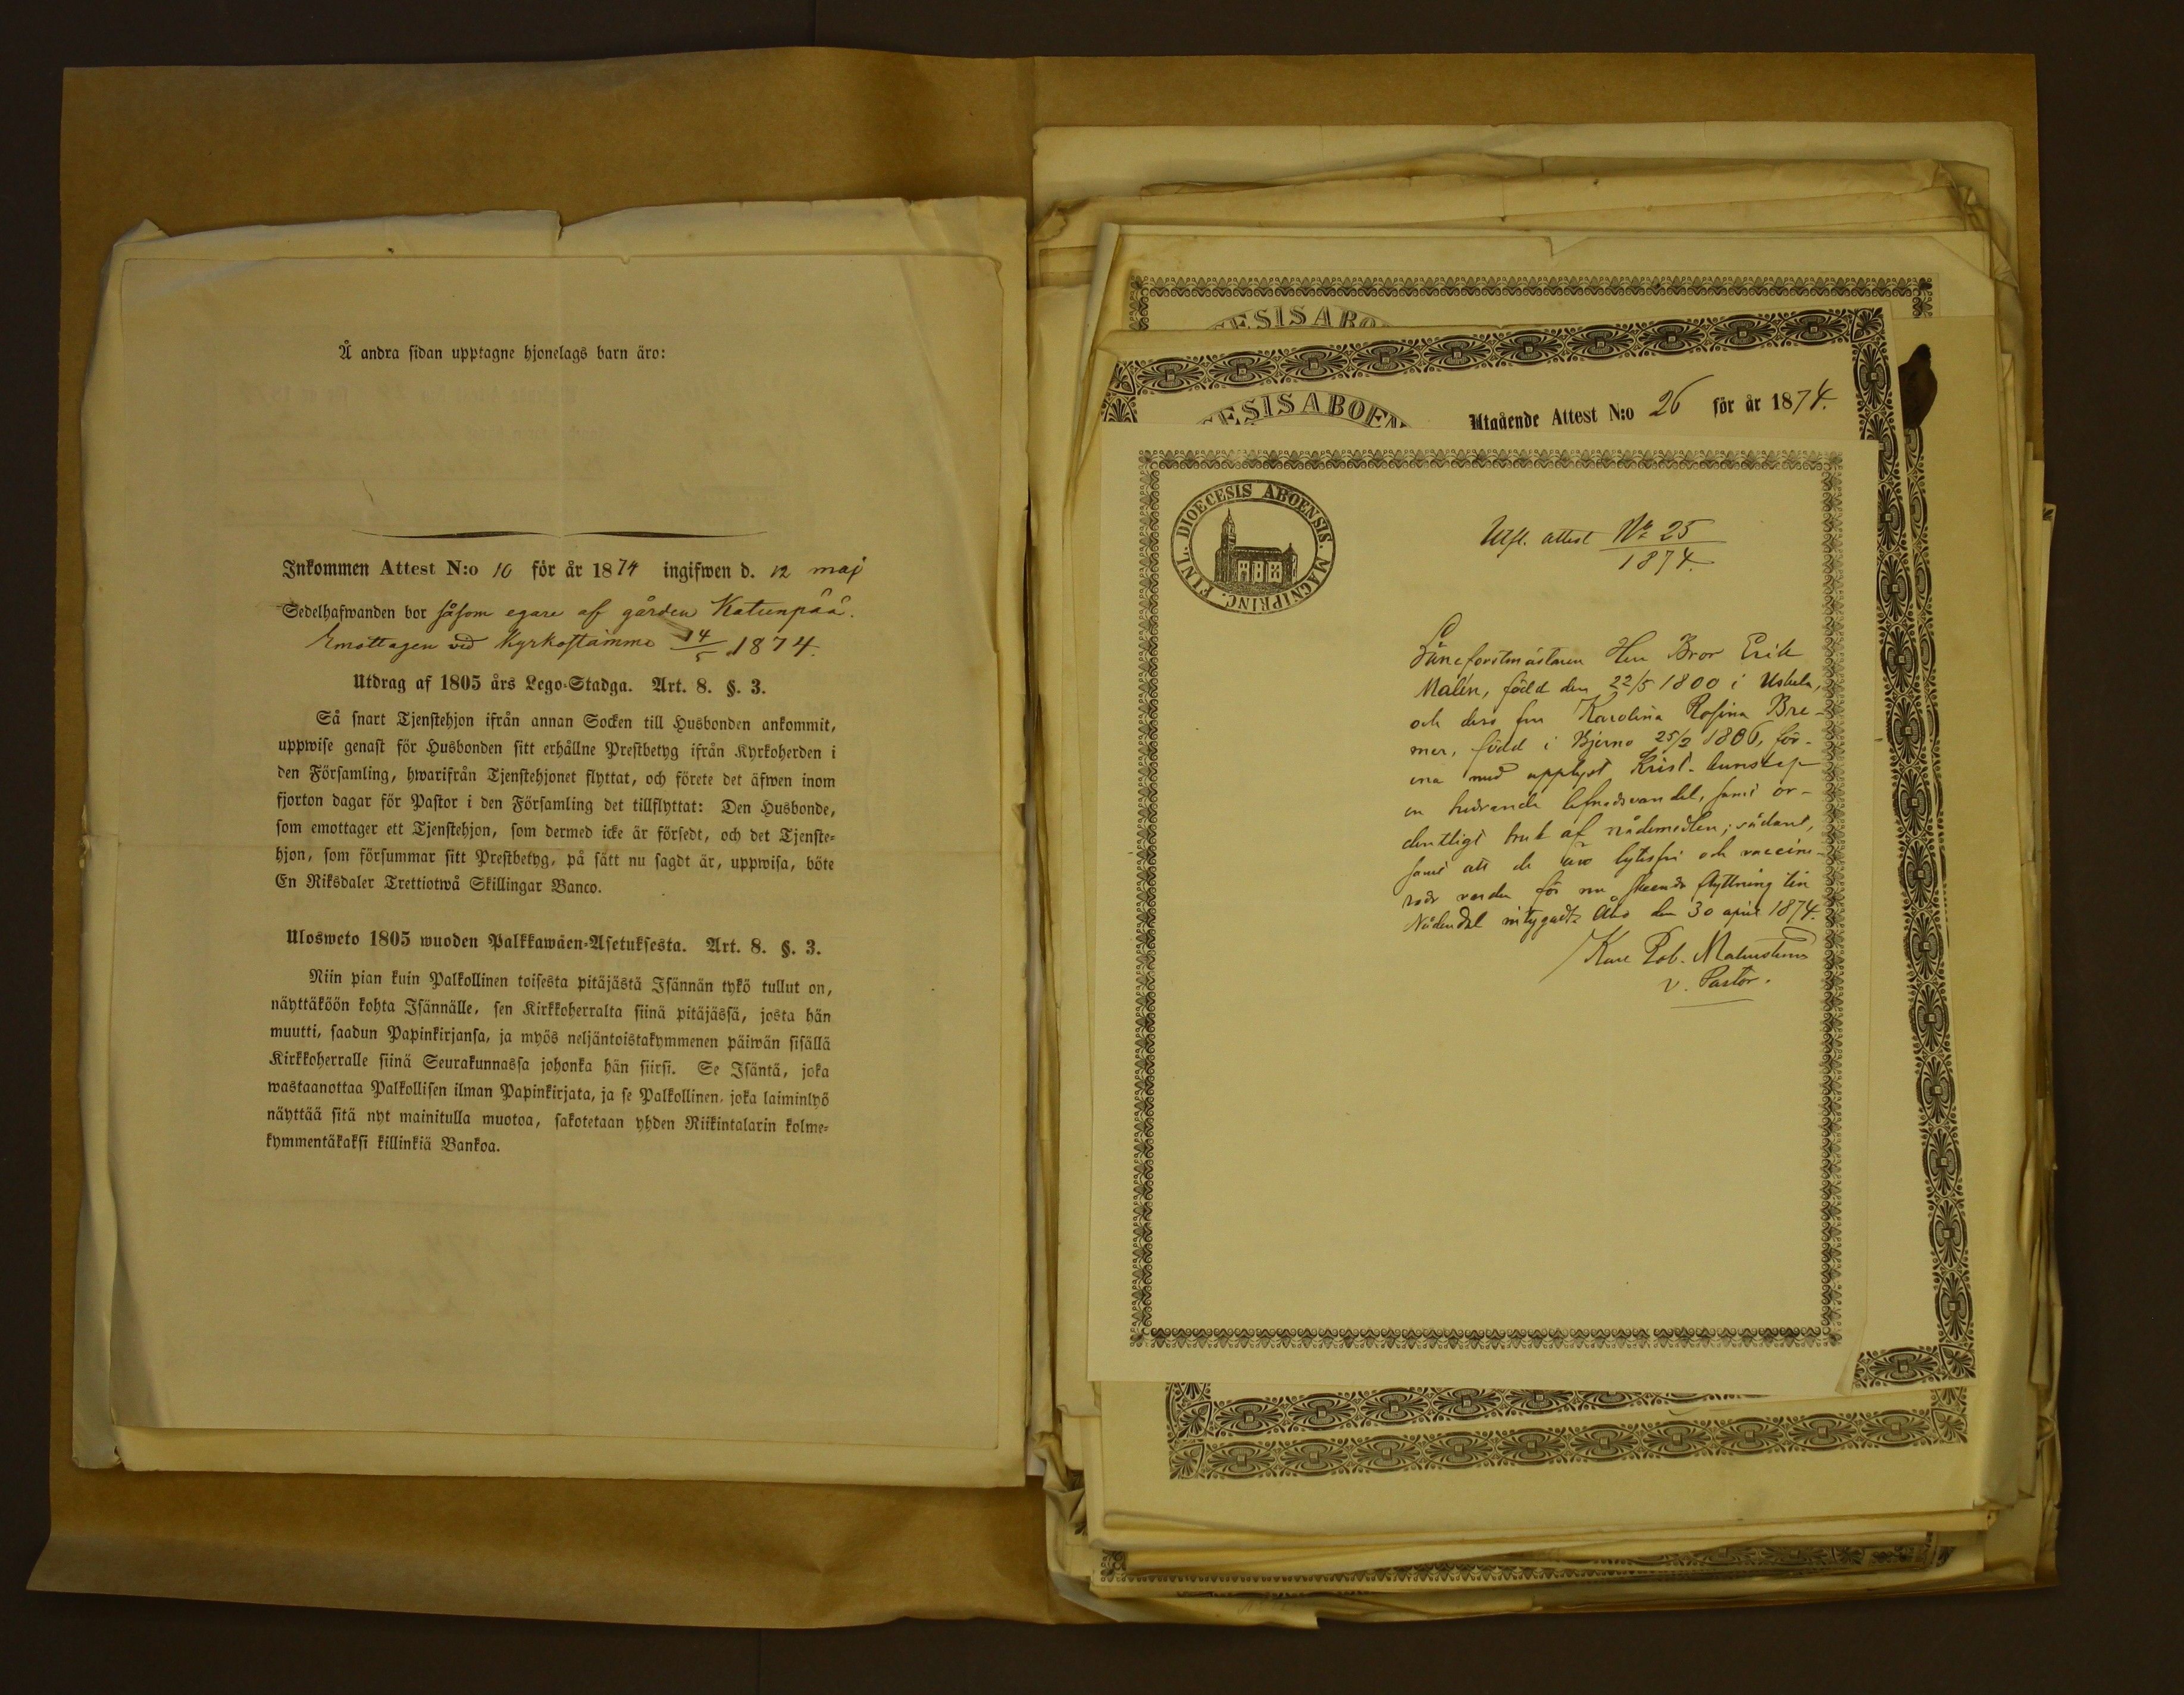 Å andra sidan upptagne hjonelags barn äro:
Inkommen Attest N:o 10 för år 1874 ingifwen d. 12 maj
Sedelhafwanden bor såsom egare af gården Katunpää.
Emottagen vid Kyrkostämma 14/5 1874.
Utdrag af 1805 års Lego-Stadga. Art. 8. §. 3.
Så snart Tjenstehjon ifrån annan Socken till Husbonden ankommit,
uppwise genast för Husbonden sitt erhållne Prestbetyg ifrån Kyrkoherden i
den Församling, hwarifrån Tjenstehjonet flyttat, och förete det äfwen inom
fjorton dagar för Pastor i den Församling det tillflyttat: Den Husbonde,
som emottager ett Tjenstehjon, som dermed icke är försedt, och det Tjenste-
hjon, som försummar sitt Prestbetyg, på sätt nu sagdt är, uppwisa, böte
En Riksdaler Trettiotwå Skillingar Banco.
Ulosweto 1805 wuoden Palkkawäen-Asetuksesta. Art. 8. §. 3.
Niin pian kuin Palkollinen toisesta pitäjästä Isännän tykö tullut on,
näyttäköön kohta Isännälle, sen Kirkkoherralta siinä pitäjässä, josta hän
muutti, saadun Papinkirjansa, ja myös neljäntoistakymmenen päiwän sisällä
Kirkkoherralle siinä Seurakunnassa johonka hän siirsi. Se Isäntä, joka
wastaanottaa Palkollisen ilman Papinkirjata, ja se Palkollinen, joka laiminlyö
näyttää sitä nyt mainitulla muotoa, sakotetaan yhden Riikintalarin kolme-
kymmentäkaksi killinkiä Bankoa.
ESIS ABO
ESIS ABOEN
Utgående Attest N:o 26 för år 1874.
DIOECESIS ABOENSIS. MAGNIPRINC. FINL.
Utfl. attest No 25
1874.
Läneforstmästaren Herr Bror Erik
Malén, född den 22/5 1800 i Uskela,
och dess fru Karolina Rosina Bre-
mer, född i Bjerno 25/2 1806, för-
ena med upplyst Krist. kunskap
en hedrande lefnadsvandel, samt or-
dentligt bruk af nådemedlen; sådant,
samt att de äro lytesfri och vaccine-
rade varder för nu skeende flyttning till
Nådendal intygadt. Åbo den 30 april 1874.
Karl Rob. Malmström
v. Pastor.